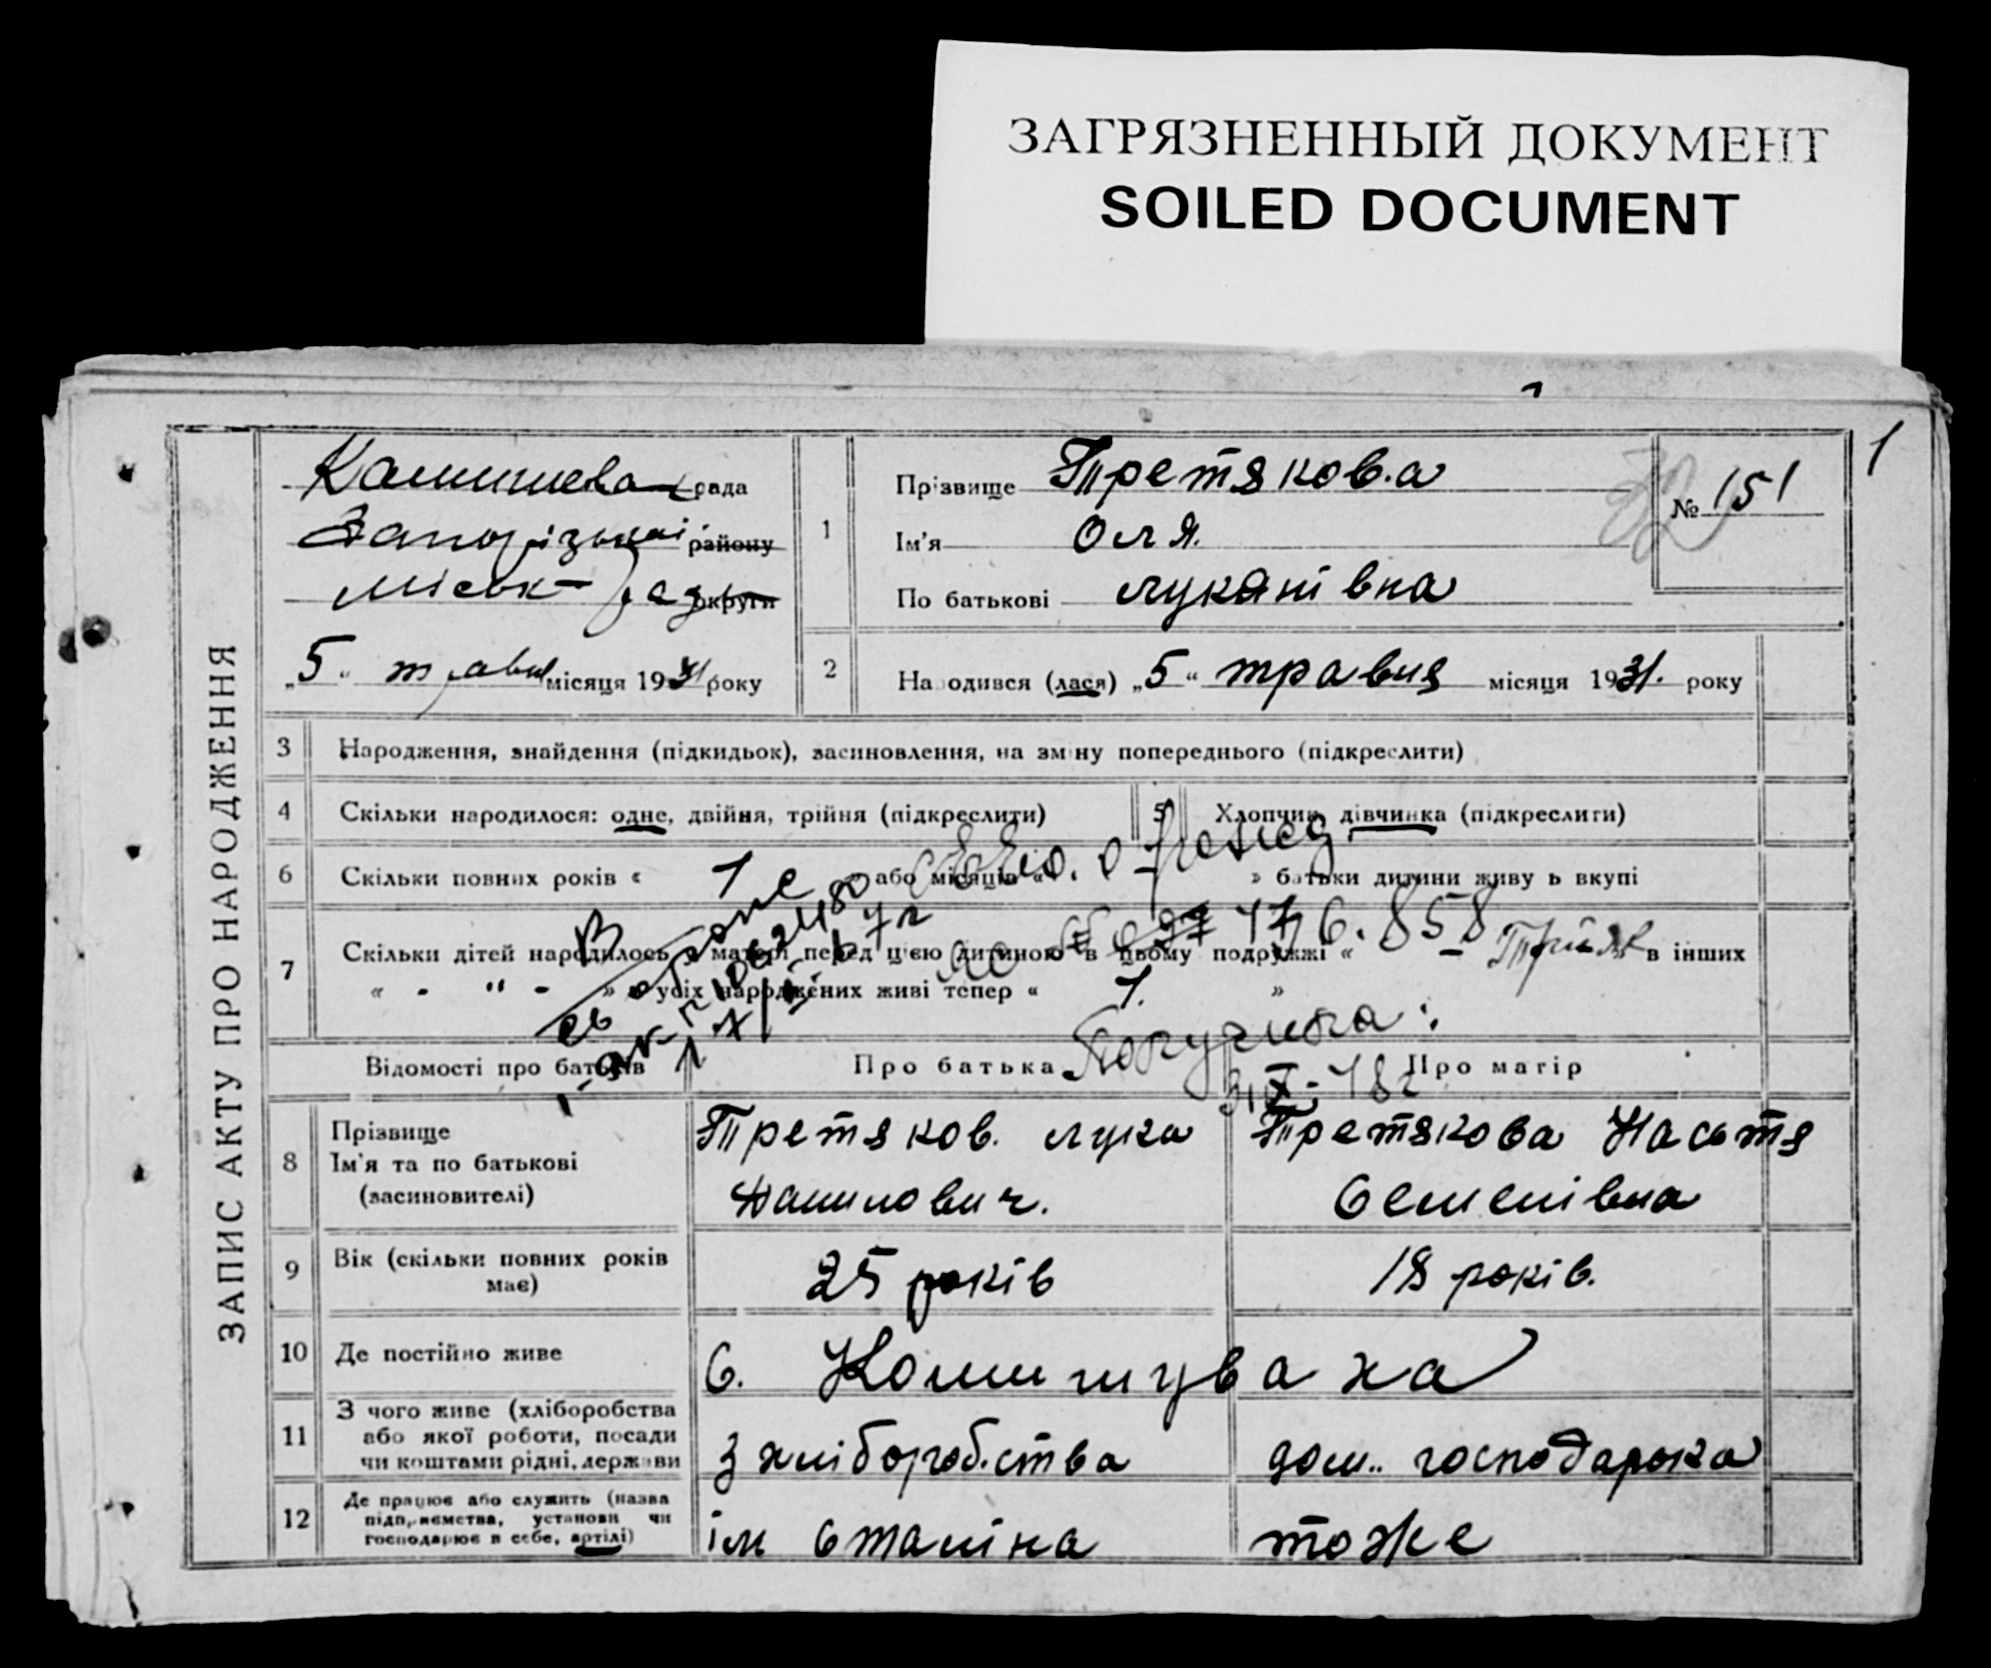 ЗАГРЯЗНЕННЫЙ ДОКУМЕНТ
SOILED DOCUMENT
1
ЗАПИС АКТУ ПРО НАРОДЖЕННЯ
рада
Запорізької району
Міськ-рад округи
„5“ травня місяця 1931 року
1
Прізвище Третякова
Ім'я Оля.
По батькові Лукянівна
№ 151
2
Народився (лася) „5“ травня місяця 1931. року
3 Народження, знайдення (підкидьок), засиновлення, на зміну попереднього (підкреслити)
4 Скільки народилося: одне, двійня, трійня (підкреслити)
5 Хлопчик, дівчинка (підкреслити)
6 Скільки повних років « 1 » або місяців « » батьки дитини живуть вкупі
7 Скільки дітей народилось у матері перед цією дитиною в цьому подружжі « » в інших
« - " - » » усіх народжених живі тепер « 1. »
Відомості про батьків Про батька Про матір
8 Прізвище
Ім'я та по батькові
(засиновителі)
Третяков. Лука
Данилович.
Третякова Настя
Семенівна
9 Вік (скільки повних років має)
25 років
18 років.
10 Де постійно живе
С. Комишуваха
11 З чого живе (хліборобства
або якої роботи, посади
чи коштами рідні, держави
З хліборобства
дом.. господарока
12 Де працює або служить (назва
підприємства, установи чи
господарює в себе, артілі)
ім Сталіна
тоже